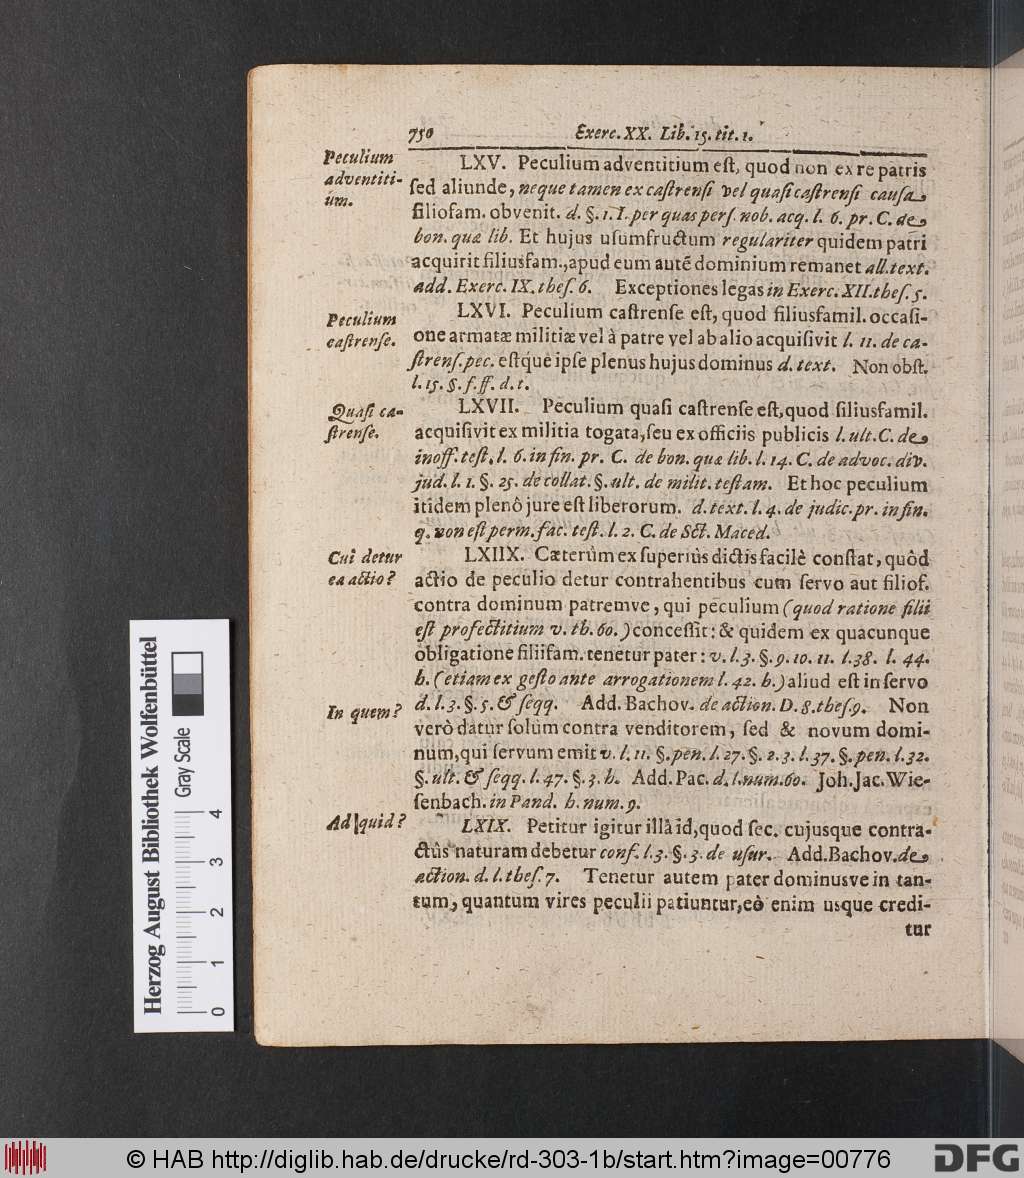 750 Exerc. XX. Lib. 15. tit. 1.
Peculium
adventiti-
um.
LXV. Peculium adventitium eſt, quod non ex re patris
ſed aliunde, neque tamen ex caſtrenſi vel quaſi caſtrenſi cauſa
filiofam. obvenit. d. §. 1. I. per quas perſ. nob. acq. l. 6. pr. C. de
bon. quæ lib. Et hujus uſumfructum regulariter quidem patri
acquirit filiusfam., apud eum autē dominium remanet all. text.
add. Exerc. IX. theſ. 6. Exceptiones legas in Exerc. XII. theſ. 5.
Peculium
caſtrenſe.
LXVI. Peculium caſtrenſe eſt, quod filiusfamil. occaſi-
one armatæ militiæ vel à patre vel ab alio acquiſivit l. 11. de ca-
ſtrenſ. pec. eſtque ipſe plenus hujus dominus d. text. Non obſt.
l. 15. §. f. ff. d. t.
Quaſi ca-
ſtrenſe.
LXVII. Peculium quaſi caſtrenſe eſt, quod filiusfamil.
acquiſivit ex militia togata, ſeu ex officiis publicis l. ult. C. de
inoff. teſt. l. 6. in fin. pr. C. de bon. quæ lib. l. 14. C. de advoc. div.
jud. l. 1. §. 25. de collat. §. ult. de milit. teſtam. Et hoc peculium
itidem plenô jure eſt liberorum. d. text. l. 4. de judic. pr. in fin.
q. non eſt perm. fac. teſt. l. 2. C. de Sct. Maced.
Cui detur
ea actio?
LXIIX. Cæterùm ex ſuperiùs dictis facilè conſtat, quôd
actio de peculio detur contrahentibus cum ſervo aut filiof.
contra dominum patremve, qui peculium (quod ratione filii
eſt profectitium v. th. 60.) conceſſit: & quidem ex quacunque
obligatione filiifam. tenetur pater: v. l. 3. §. 9. 10. 11. l. 38. l. 44.
h. (etiam ex geſto ante arrogationem l. 42. h.) aliud eſt in ſervo
In quem?
d. l. 3. §. 5. & ſeqq. Add. Bachov. de action. D. 8. theſ. 9. Non
verò datur ſolùm contra venditorem, ſed & novum domi-
num, qui ſervum emit v. l. 11. §. pen. l. 27. §. 2. 3. l. 37. §. pen. l. 32.
§. ult. & ſeqq. l. 47. §. 3. h. Add. Pac. d. l. num. 60. Joh. Jac. Wie-
ſenbach. in Pand. h. num. 9.
Ad quid?
LXIX. Petitur igitur illà id, quod ſec. cujusque contra-
ctûs naturam debetur conf. l. 3. §. 3. de uſur. Add. Bachov. de
action. d. l. theſ. 7. Tenetur autem pater dominusve in tan-
tum, quantum vires peculii patiuntur, eò enim usque credi-
tur
Herzog August Bibliothek Wolfenbüttel
Gray Scale
0 1 2 3 4
© HAB http://diglib.hab.de/drucke/rd-303-1b/start.htm?image=00776
DFG